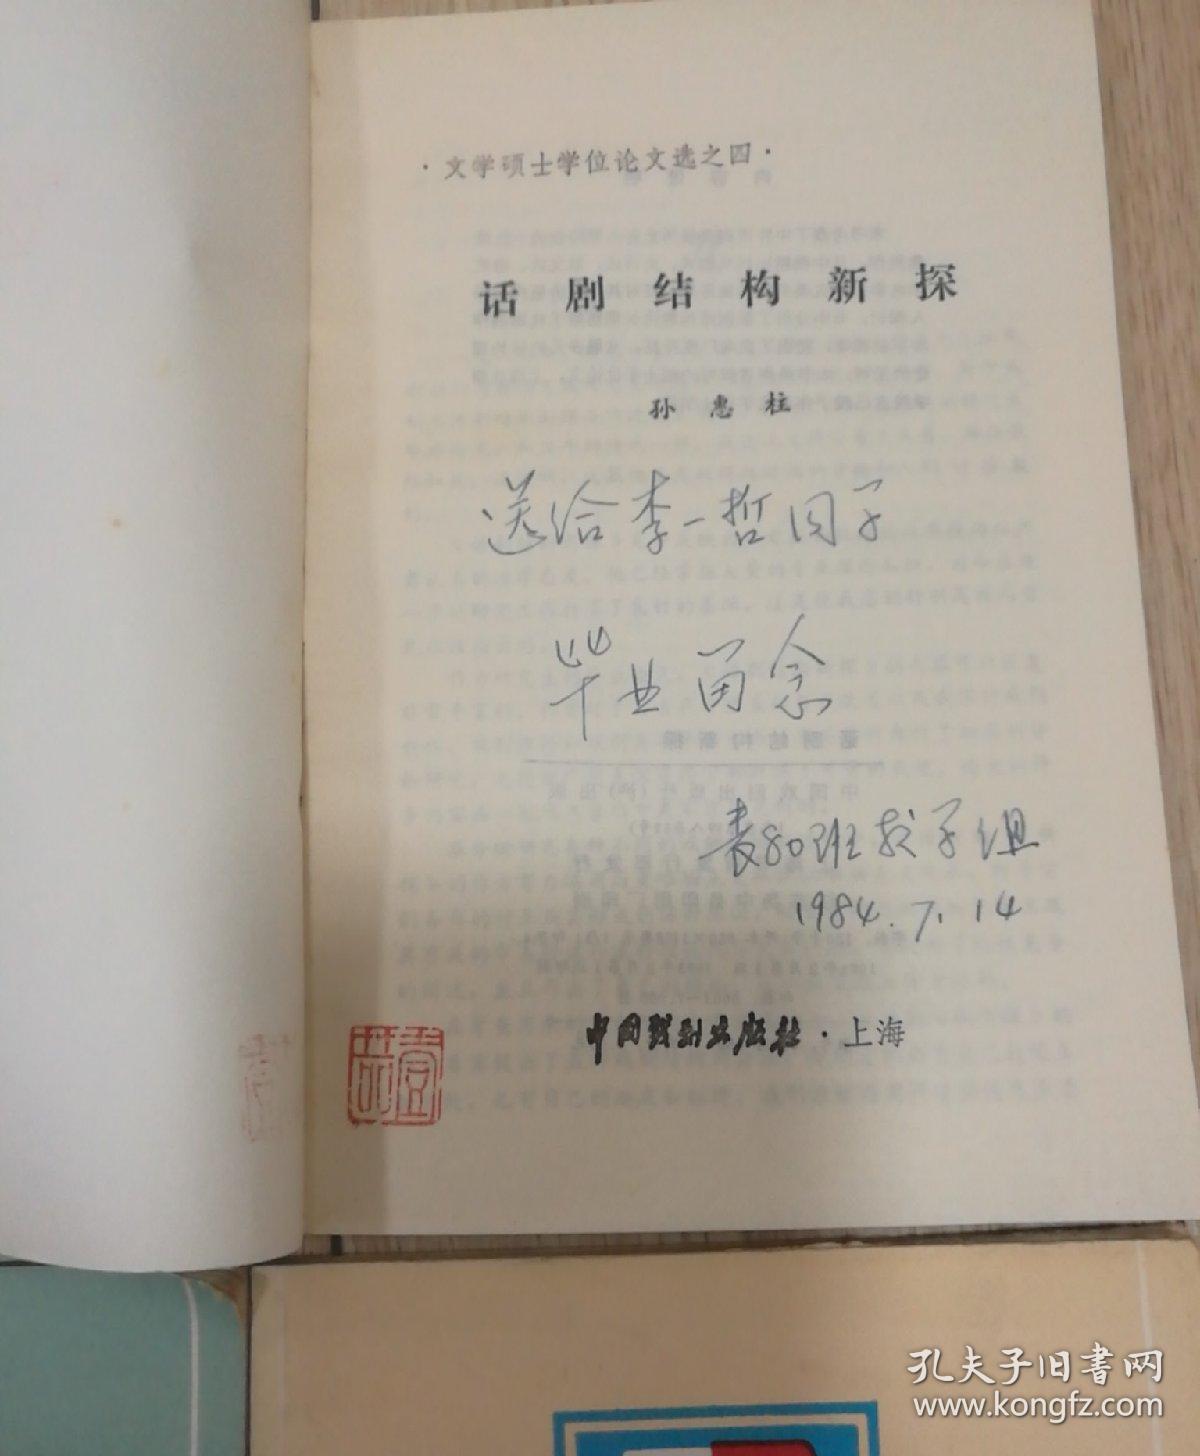 ·文学硕士学位论文选之四·
话剧结构新探
孙惠柱
送给李一哲同学
毕业留念
表80班教学组
1984.7.14
中国戏剧出版社·上海
孔夫子旧书网
www.kongfz.com